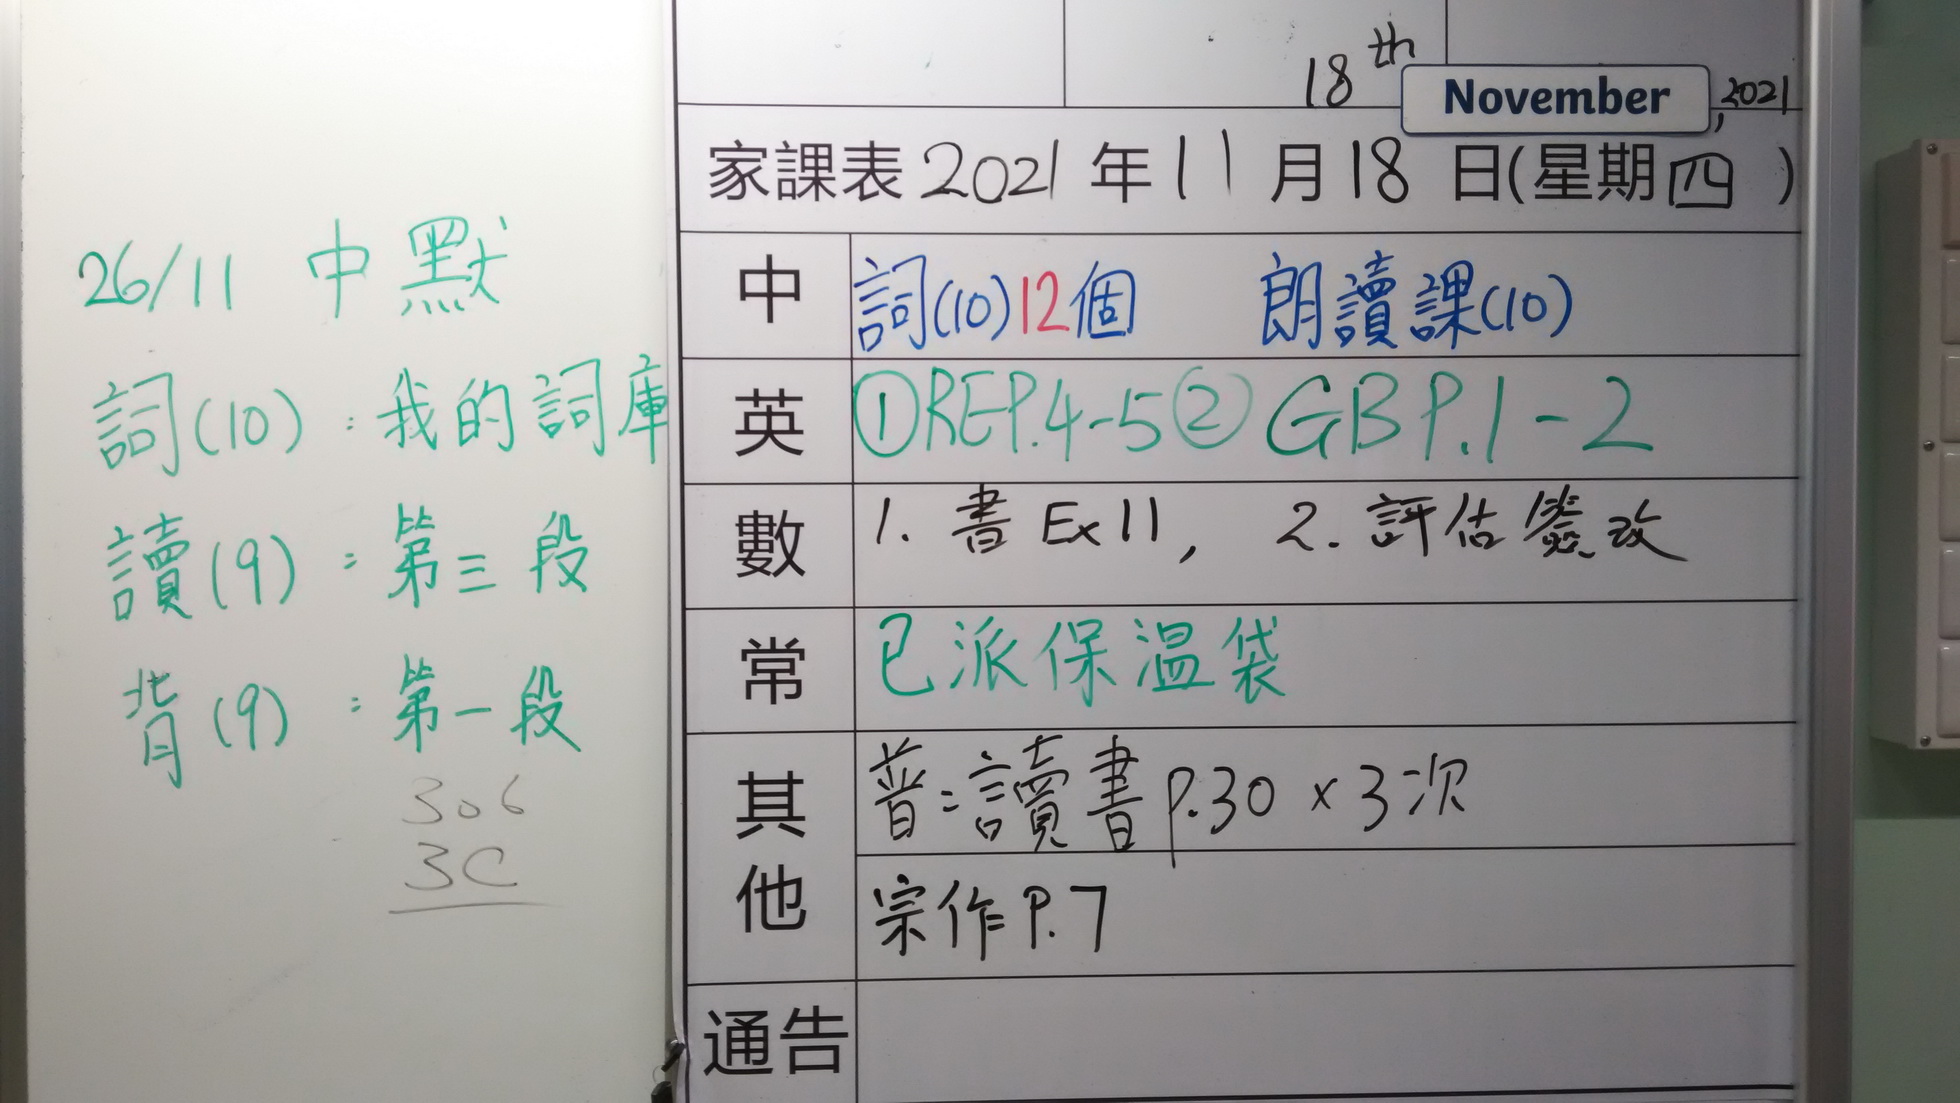 26/11 中默
詞(10):我的詞庫
讀(9):第三段
背(9):第一段
306
3C
18th November, 2021
家課表2021年11月18日(星期四)
中 詞(10)12個 朗讀課(10)
英 ①REP.4-5②GBP.1-2
數 1. 書Ex11, 2. 評估簽改
常 已派保溫袋
其他 普:讀書p.30×3次
宗作P.7
通告